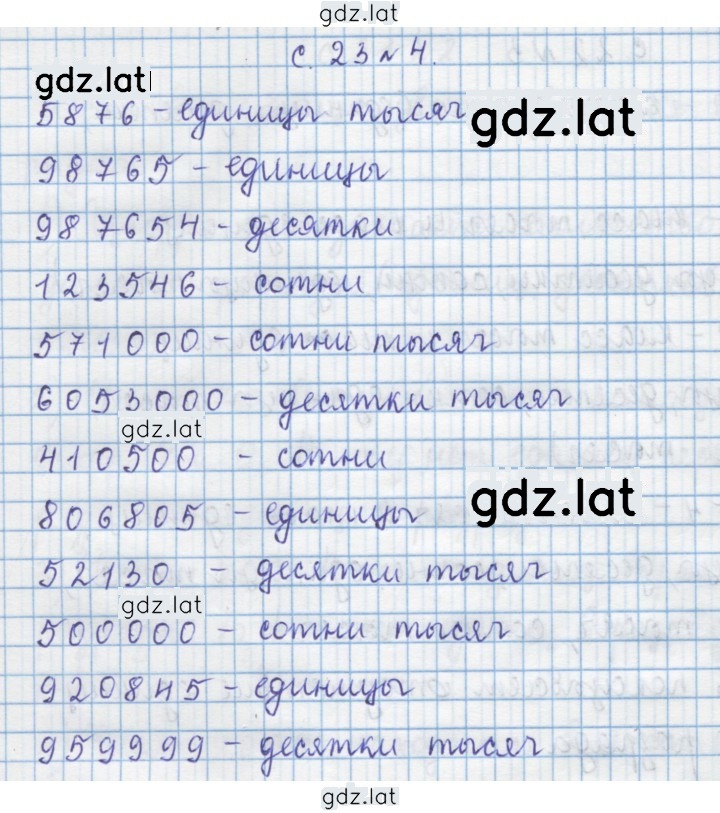 gdz.lat
с. 23 № 4.
gdz.lat
5876 - единицы тысяч
gdz.lat
98765 - единицы
987654 - десятки
123546 - сотни
571000 - сотни тысяч
6053000 - десятки тысяч
gdz.lat
410500 - сотни
gdz.lat
806805 - единицы
52130 - десятки тысяч
gdz.lat
500000 - сотни тысяч
920845 - единицы
959999 - десятки тысяч
gdz.lat